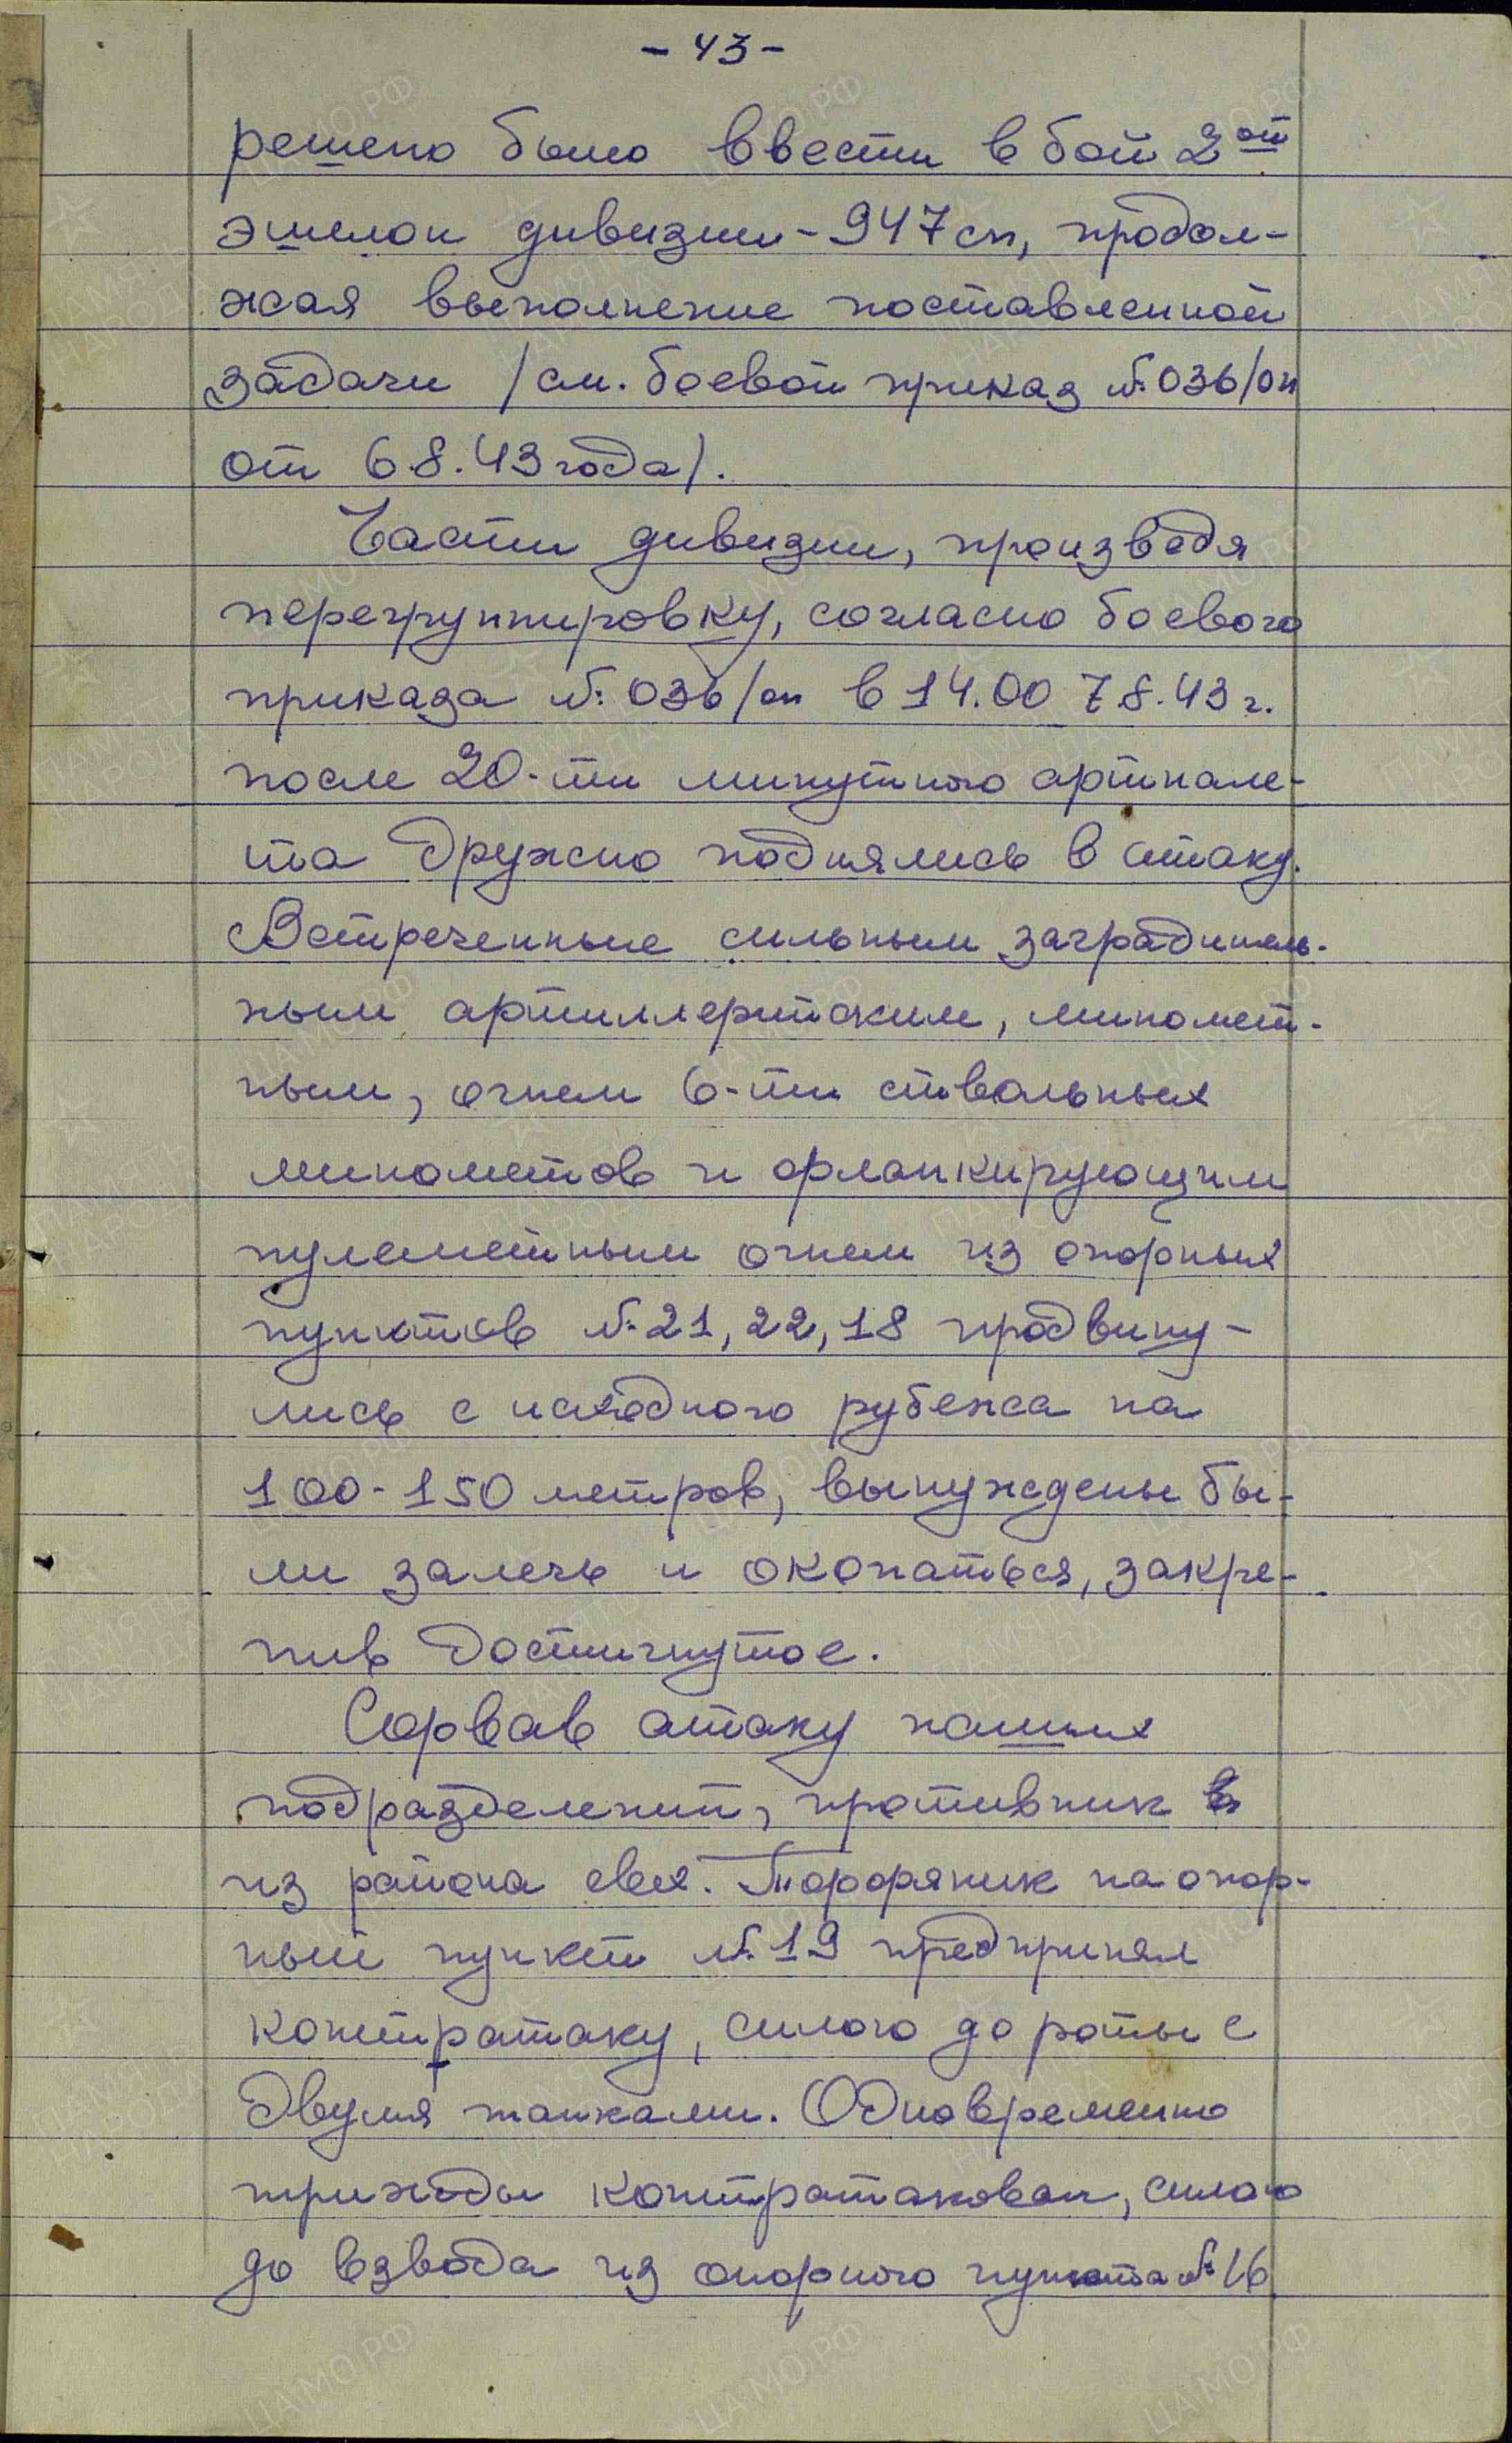 - 43 -
решено было ввести в бой 2ой
эшелон дивизии - 947 сп, продол-
жая выполнение поставленной
задачи /см. боевой приказ №036/оп
от 6.8.43 года/.
Части дивизии, произведя
перегруппировку, согласно боевого
приказа №036/оп в 14.00 7.8.43 г.
после 20-ти минутного артнале-
та дружно поднялись в атаку.
Встреченные сильным заградитель-
ным артиллерийским, миномет-
ным, огнем 6-ти ствольных
минометов и фланкирующим
пулеметным огнем из опорных
пунктов №21, 22, 18 продвину-
лись с исходного рубежа на
100-150 метров, вынуждены бы-
ли залечь и окопаться, закре-
пив достигнутое.
Сорвав атаку наших
подразделений, противник
из района свх. Торфяник на опор-
ный пункт №19 предпринял
контратаку, силою до роты с
двумя танками. Одновременно
трижды контратаковал, силою
до взвода из опорного пункта №16